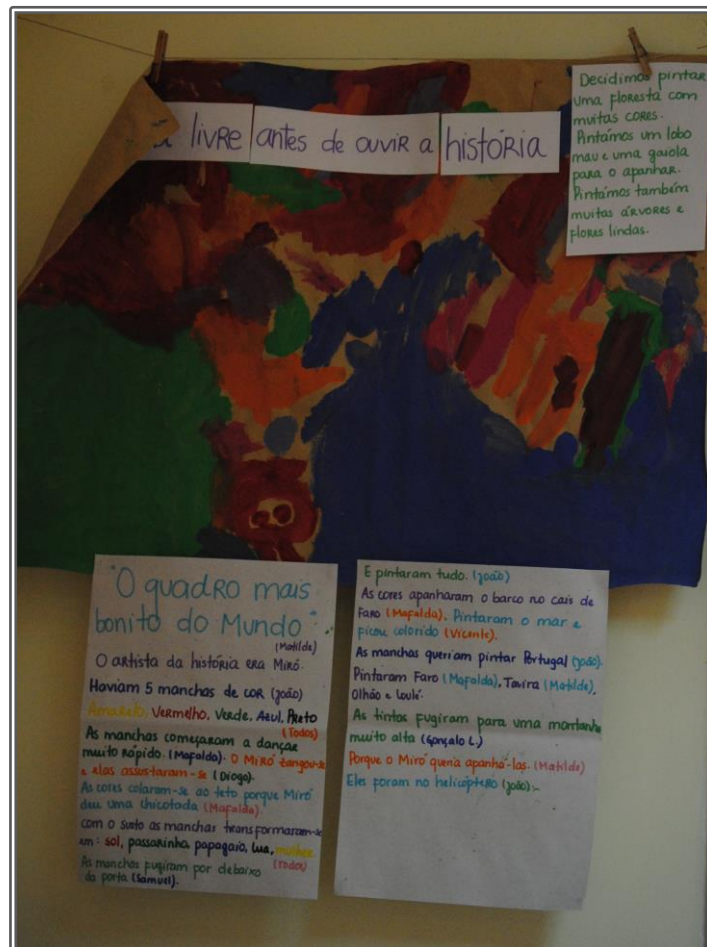 livre antes de ouvir a história
Decidimos pintar
uma floresta com
muitas cores.
Pintámos um lobo
mau e uma gaiola
para o apanhar.
Pintámos também
muitas árvores e
flores lindas.
"O quadro mais
bonito do Mundo"
(Matilde)
O artista da história era Miró.
Haviam 5 manchas de cor (João)
Amarelo, Vermelho, Verde, Azul, Preto
(Todos)
As manchas começaram a dançar
muito rápido. (Mafalda). O Miró zangou-se
e elas assustaram-se (Diogo).
As cores colaram-se ao teto porque Miró
deu uma chicotada (Mafalda).
com o susto as manchas transformaram-se
em: sol, passarinho, papagaio, lua, mulher.
(Todos)
As manchas fugiram por debaixo
da porta (Samuel).
E pintaram tudo. (João)
As cores apanharam o barco no cais de
Faro (Mafalda). Pintaram o mar e
ficou colorido (Vicente).
As manchas queriam pintar Portugal (João).
Pintaram Faro (Mafalda), Tavira (Matilde),
Olhão e Loulé.
As tintas fugiram para uma montanha
muito alta (Gonçalo L.)
Porque o Miró queria apanhá-las. (Matilde)
Eles foram no helicóptero (João).